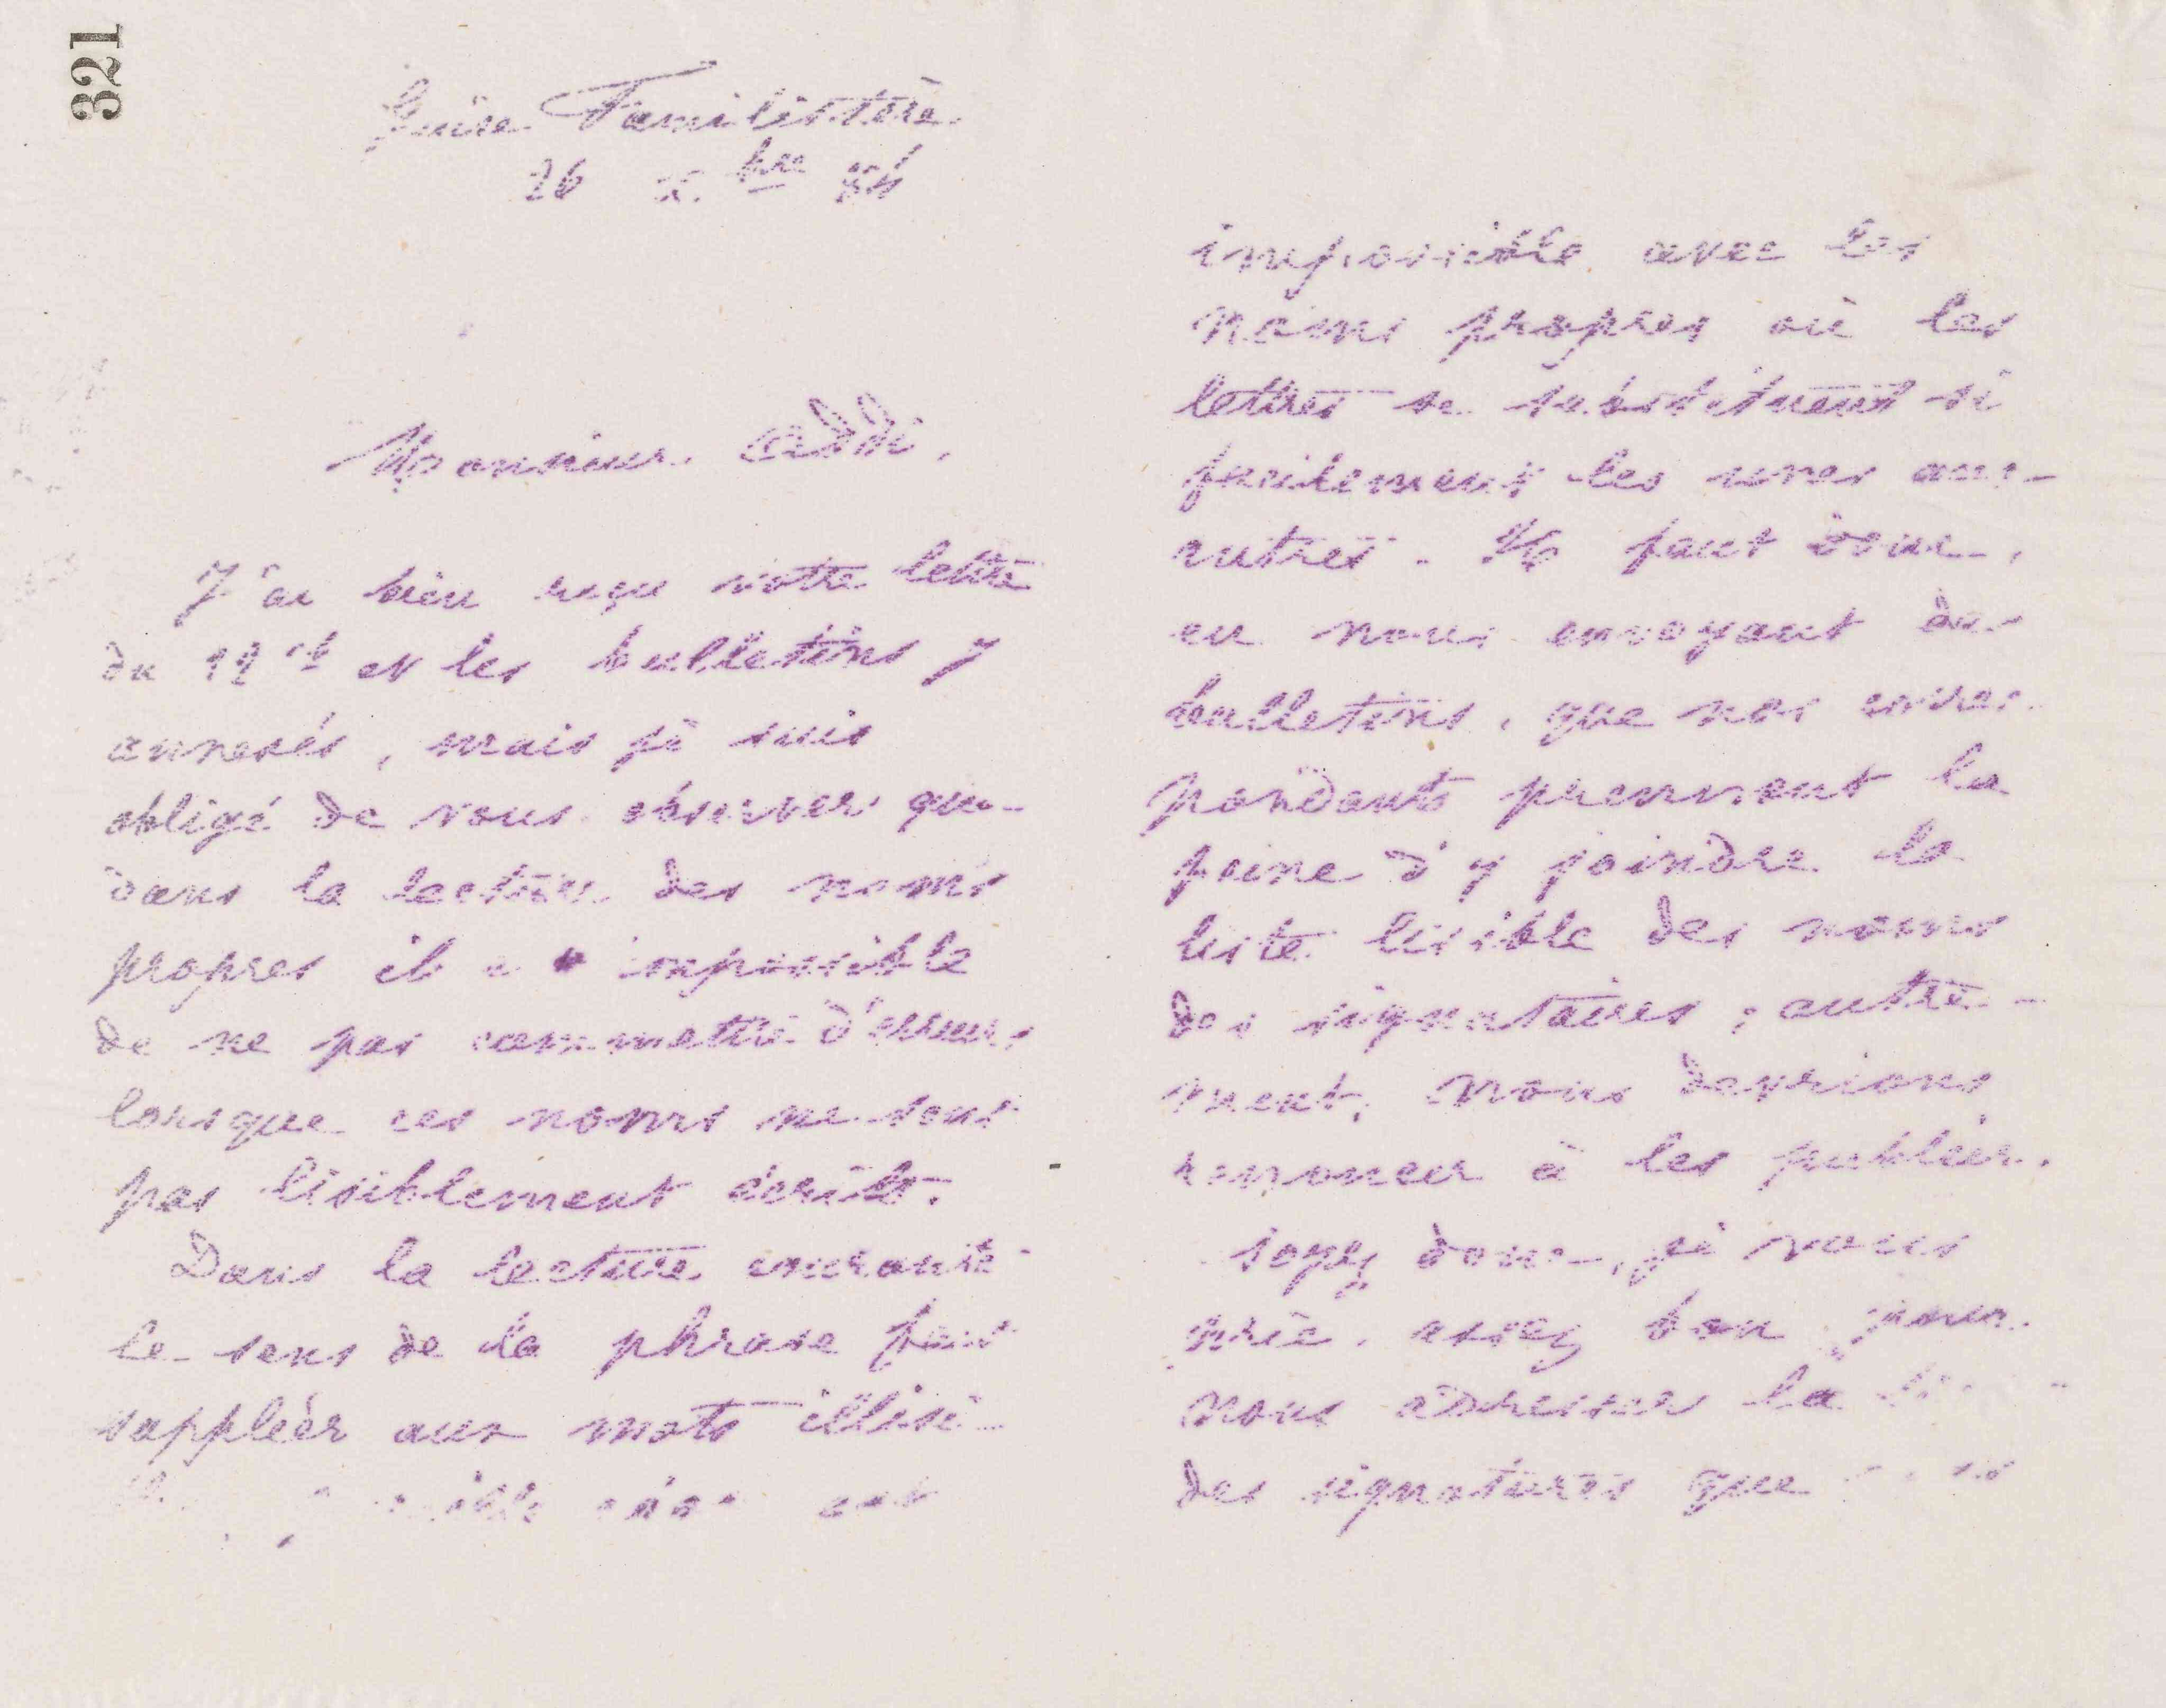 321
Guise Familistère
26 X.bre
Monsieur Addi,
J'ai bien reçu votre lettre
du 12 ct et les bulletins y
annexés, mais je suis
obligé de vous observer que
dans la lecture des noms
propres il impossible
de ne pas commettre d'erreurs
lorsque ces noms ne sont
pas lisiblement écrits.
Dans la lecture courante
le sens de la phrase fait
suppléer aux mots illisi-
est
impossible avec les
noms propres où les
lettres se substituent si
facilement les unes aux
autres. Il faut donc,
en nous envoyant des
bulletins, que nos corres-
pondants prennent la
peine d'y joindre la
liste lisible des noms
des signataires ; autre-
ment, nous devrions
renoncer à les publier.
Soyez donc, je vous
prie, assez bon pour
nous adresser la
des signatures que